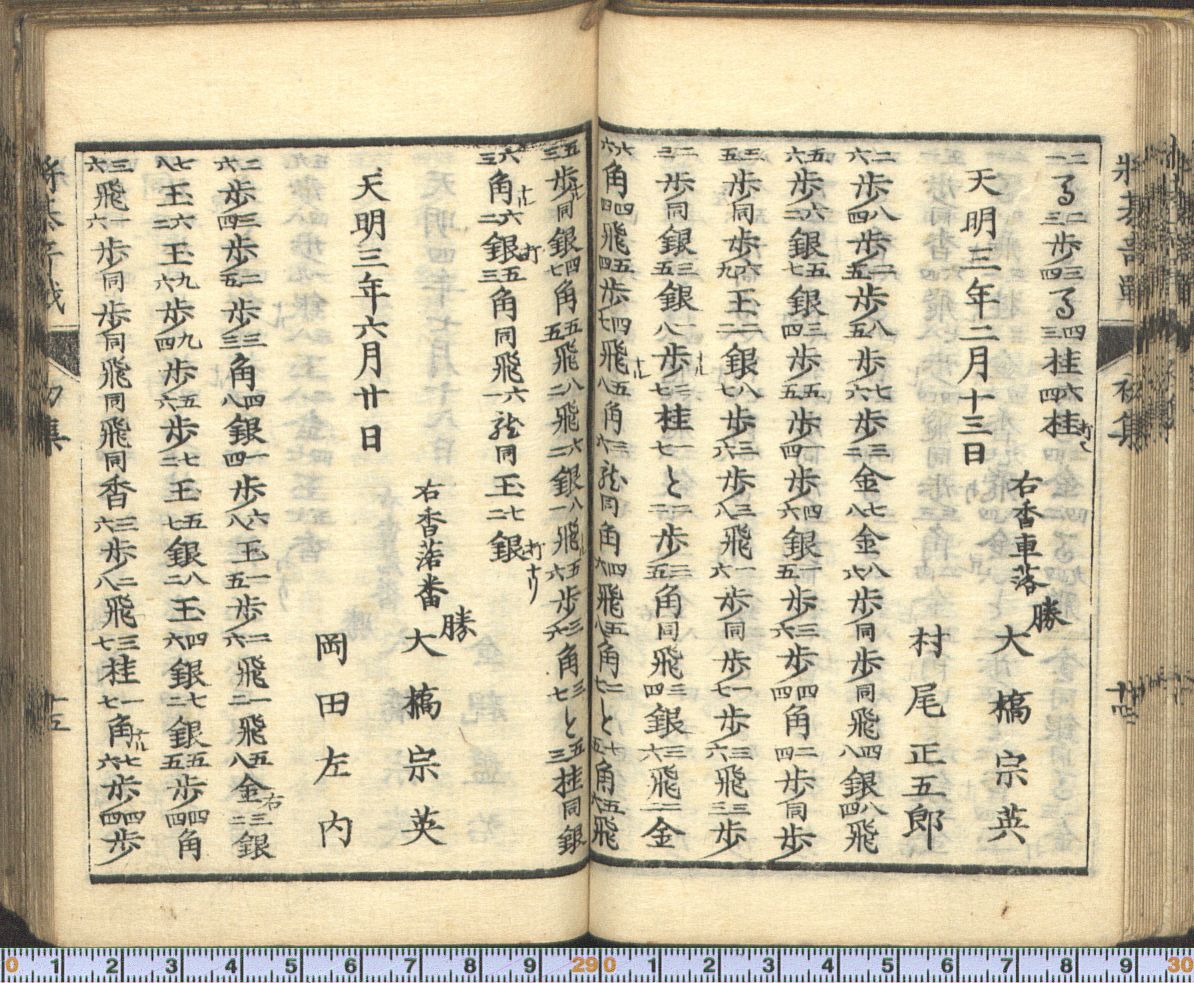 将棊奇戦 初集 十四
二一る二三歩三四る四三桂六四桂打
天明三年二月十三日
右香車落 勝 大橋宗英
村尾正五郎
二六歩八四歩二五歩八五歩七六歩三二金七八金八六歩同歩同飛四八銀八四飛
五六歩六二銀五七銀三四歩五五歩六四歩六六銀一五歩三六歩四四角二四歩同歩
三五歩同歩六九王二二銀七八歩三八飛一六歩同歩一七歩三六飛三三歩
二三歩同銀三五銀八八歩二七桂七と二二歩三五角同飛三四銀三六飛二二金
六六角四四飛五四歩四七飛五八角三六龍同角四六飛五八角二七と七五角五六飛
五三歩同銀四七角五五飛八二飛六二銀八一飛五六歩三六角三七と五三桂同銀
六三角六二銀打五三角同飛六一龍同玉七二銀打
天明三年六月廿日
右香落番 勝 大橋宗英
岡田左内
二六歩三四歩二五歩三三角四八銀一四歩六八玉一五歩二六飛一二飛五八金右三二銀
七八王六二王九六歩九四歩五六歩七二王五七銀八二王四六銀七二銀五五歩四四角
三六飛一六歩同歩同飛同飛同香三六歩二八飛三七桂一七角七六歩四四歩
将棊奇戦 初集 十五